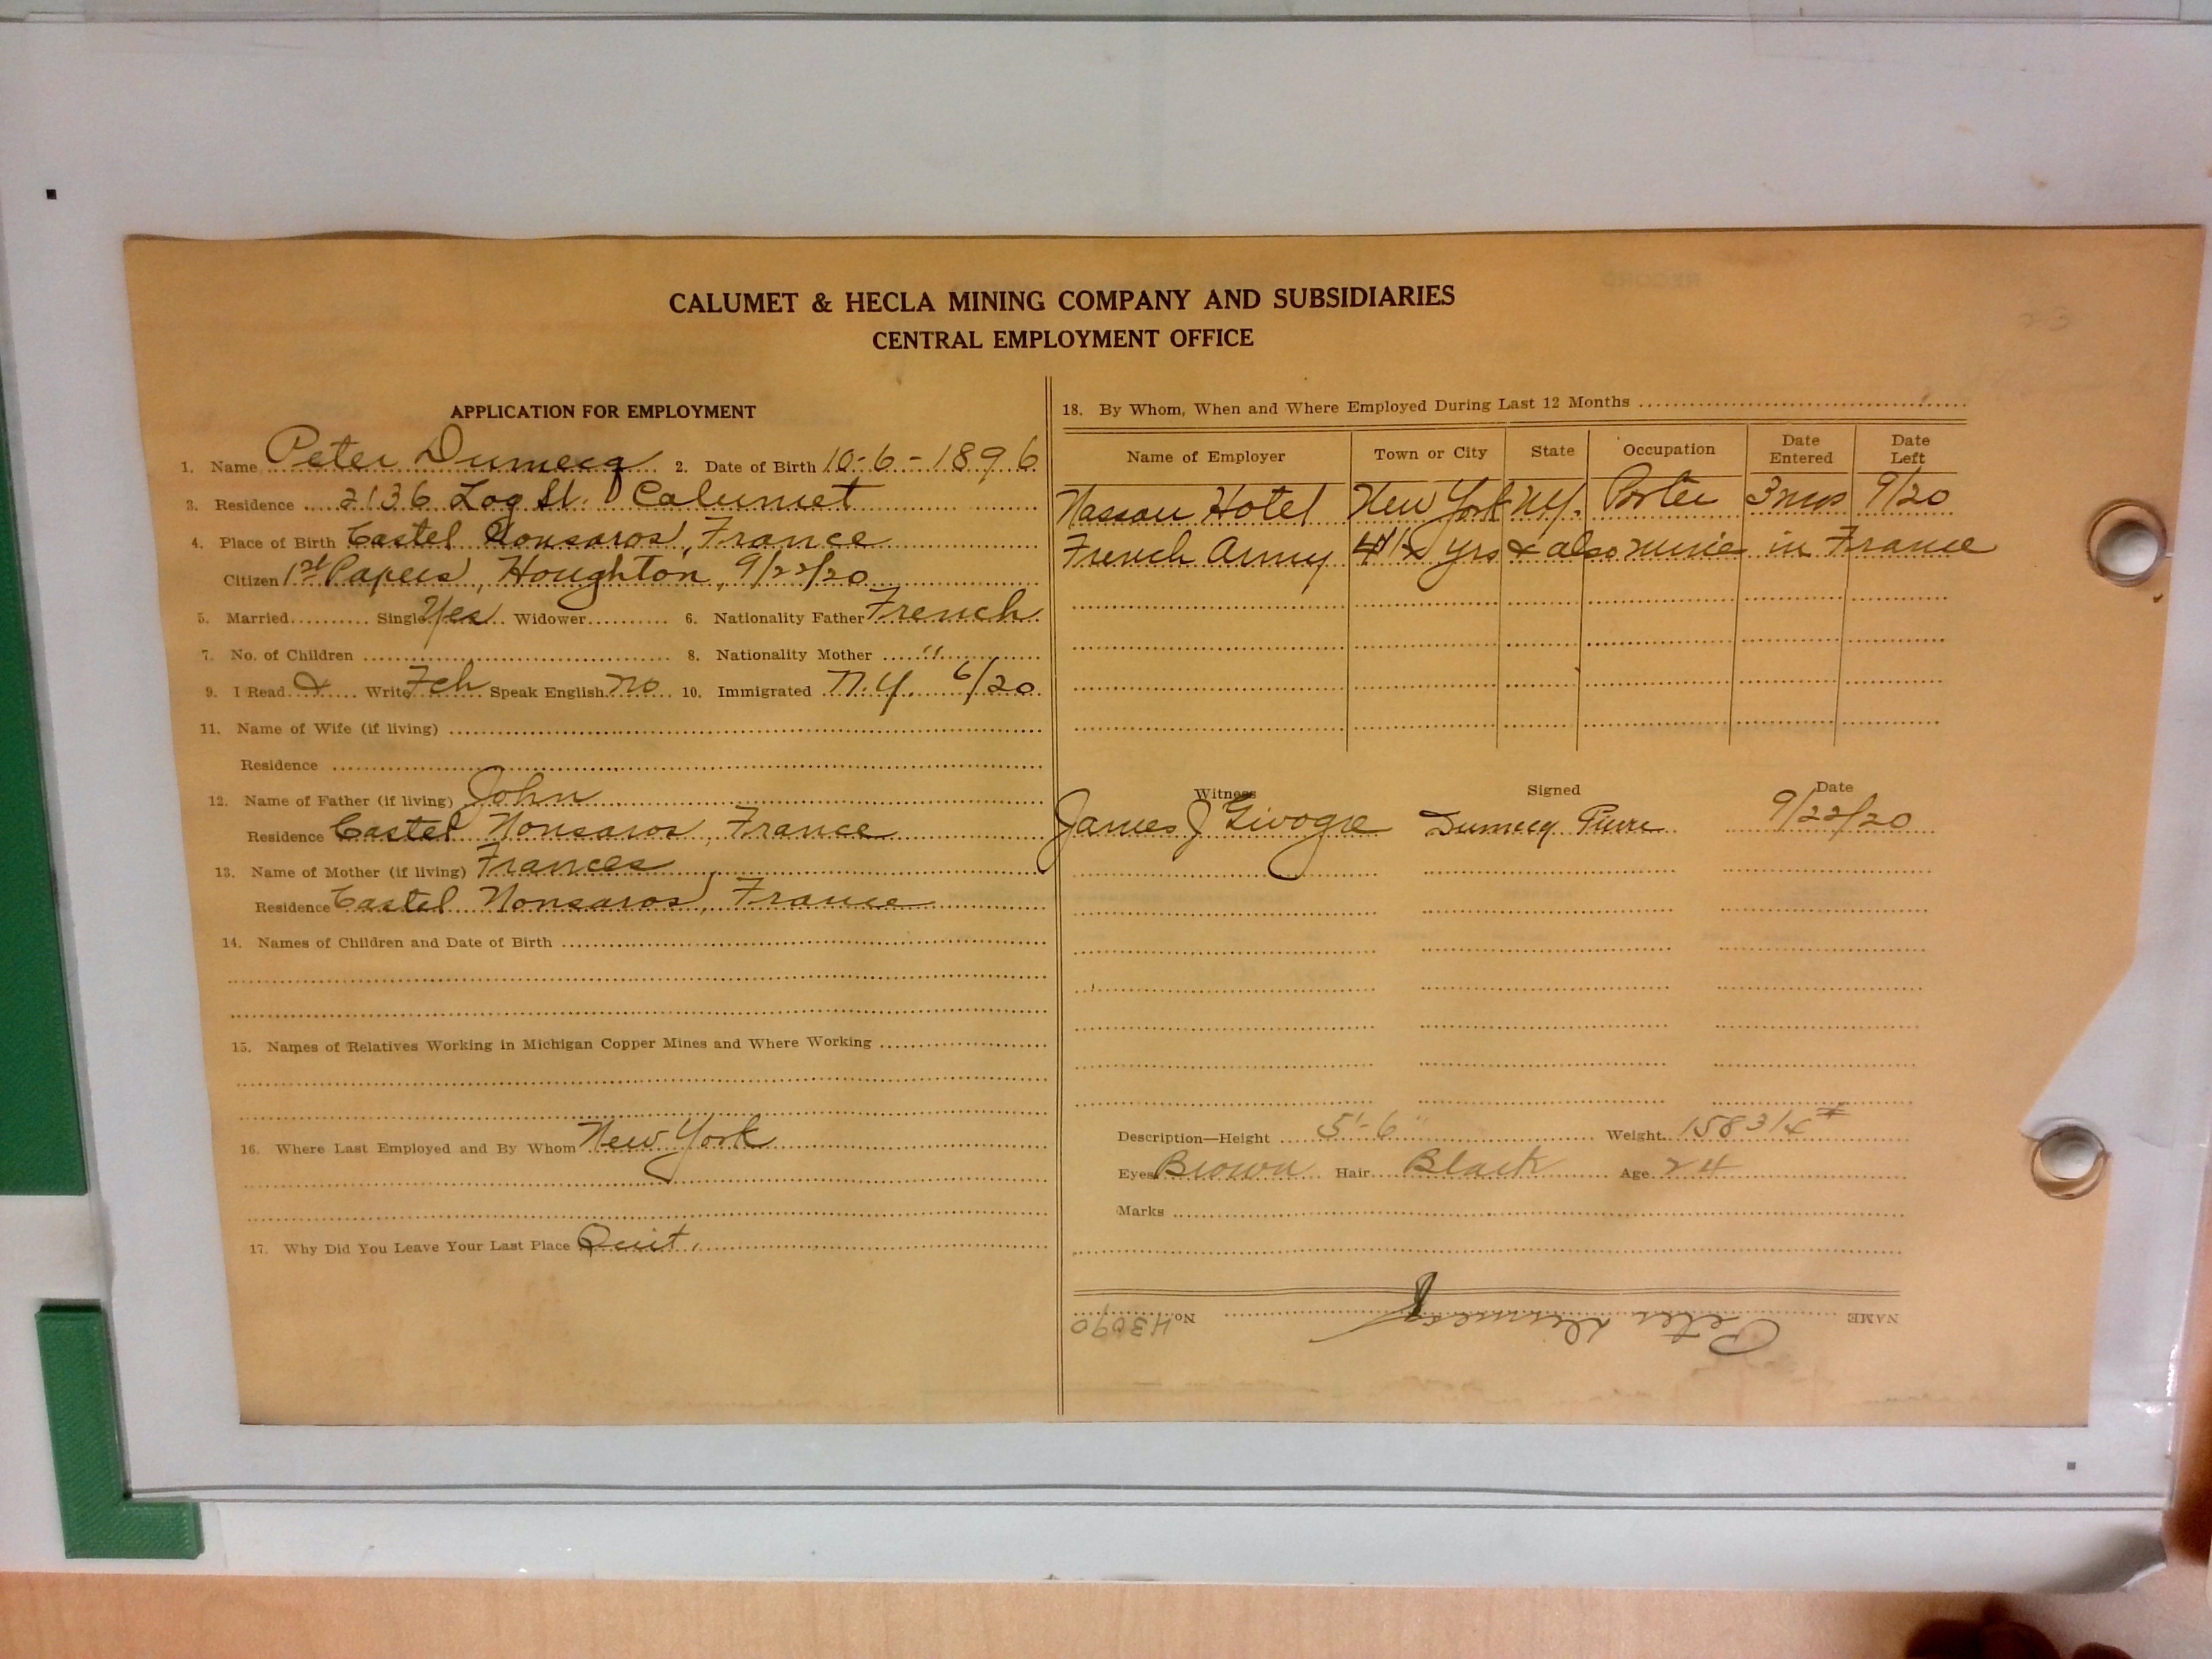 CALUMET & HECLA MINING COMPANY AND SUBSIDIARIES
CENTRAL EMPLOYMENT OFFICE
APPLICATION FOR EMPLOYMENT
1. Name Peter Dumecq 2. Date of Birth 10-6-1896
3. Residence 2136 Log St. Calumet
4. Place of Birth Castel Nonsaros, France
Citizen 1st Papers, Houghton, 9/22/20
5. Married Single Yes Widower 6. Nationality Father French
7. No. of Children 8. Nationality Mother "
9. I Read & Write Fch Speak English no 10. Immigrated N.Y. 6/20
11. Name of Wife (if living)
Residence
12. Name of Father (if living) John
Residence Castel Nonsaros, France
13. Name of Mother (if living) Frances
Residence Castel Nonsaros, France
14. Names of Children and Date of Birth
15. Names of Relatives Working in Michigan Copper Mines and Where Working
16. Where Last Employed and By Whom New York
17. Why Did You Leave Your Last Place Quit.
18. By Whom, When and Where Employed During Last 12 Months
Name of Employer Town or City State Occupation Date Entered Date Left
Nassau Hotel New York N.Y. Porter 3 mos 9/20
French Army 4 1/2 yrs & also mines in France
Witness Signed Date
James J Dumecq Pierre 9/22/20
Description—Height 5'-6" Weight 158 3/4 #
Eyes Brown Hair Black Age 24
Marks
NAME Peter Dumecq No. 43090